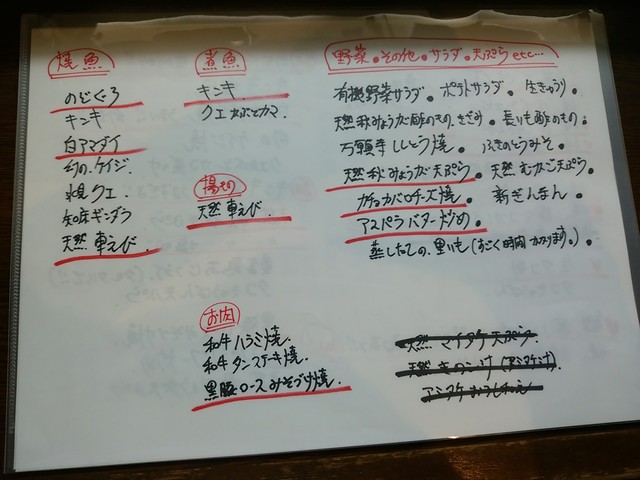 焼魚
のどぐろ
キンキ
白アマダイ
幻の、ケイジ
クエ
知床ギンダラ
天然 車えび
煮魚
キンキ
クエ カマ
揚もの
天然車えび
お肉
和牛ハラミ焼
和牛タンステーキ焼
黒豚ロースみそづけ焼
野菜。その他。サラダ。天ぷら etc…
有機野菜サラダ。ポテトサラダ。生きゅうり。
天然秋みょうが酢のもの きざみ。長いも酢のもの。
万願寺ししとう焼。ふきのとうみそ。
天然秋みょうが天ぷら。天然むかご天ぷら。
カチョカバロチーズ焼。新ぎんなん。
アスパラバター炒め。
蒸したての、里いも(すごく時間かかります。)。
天然 マイタケ天ぷら。